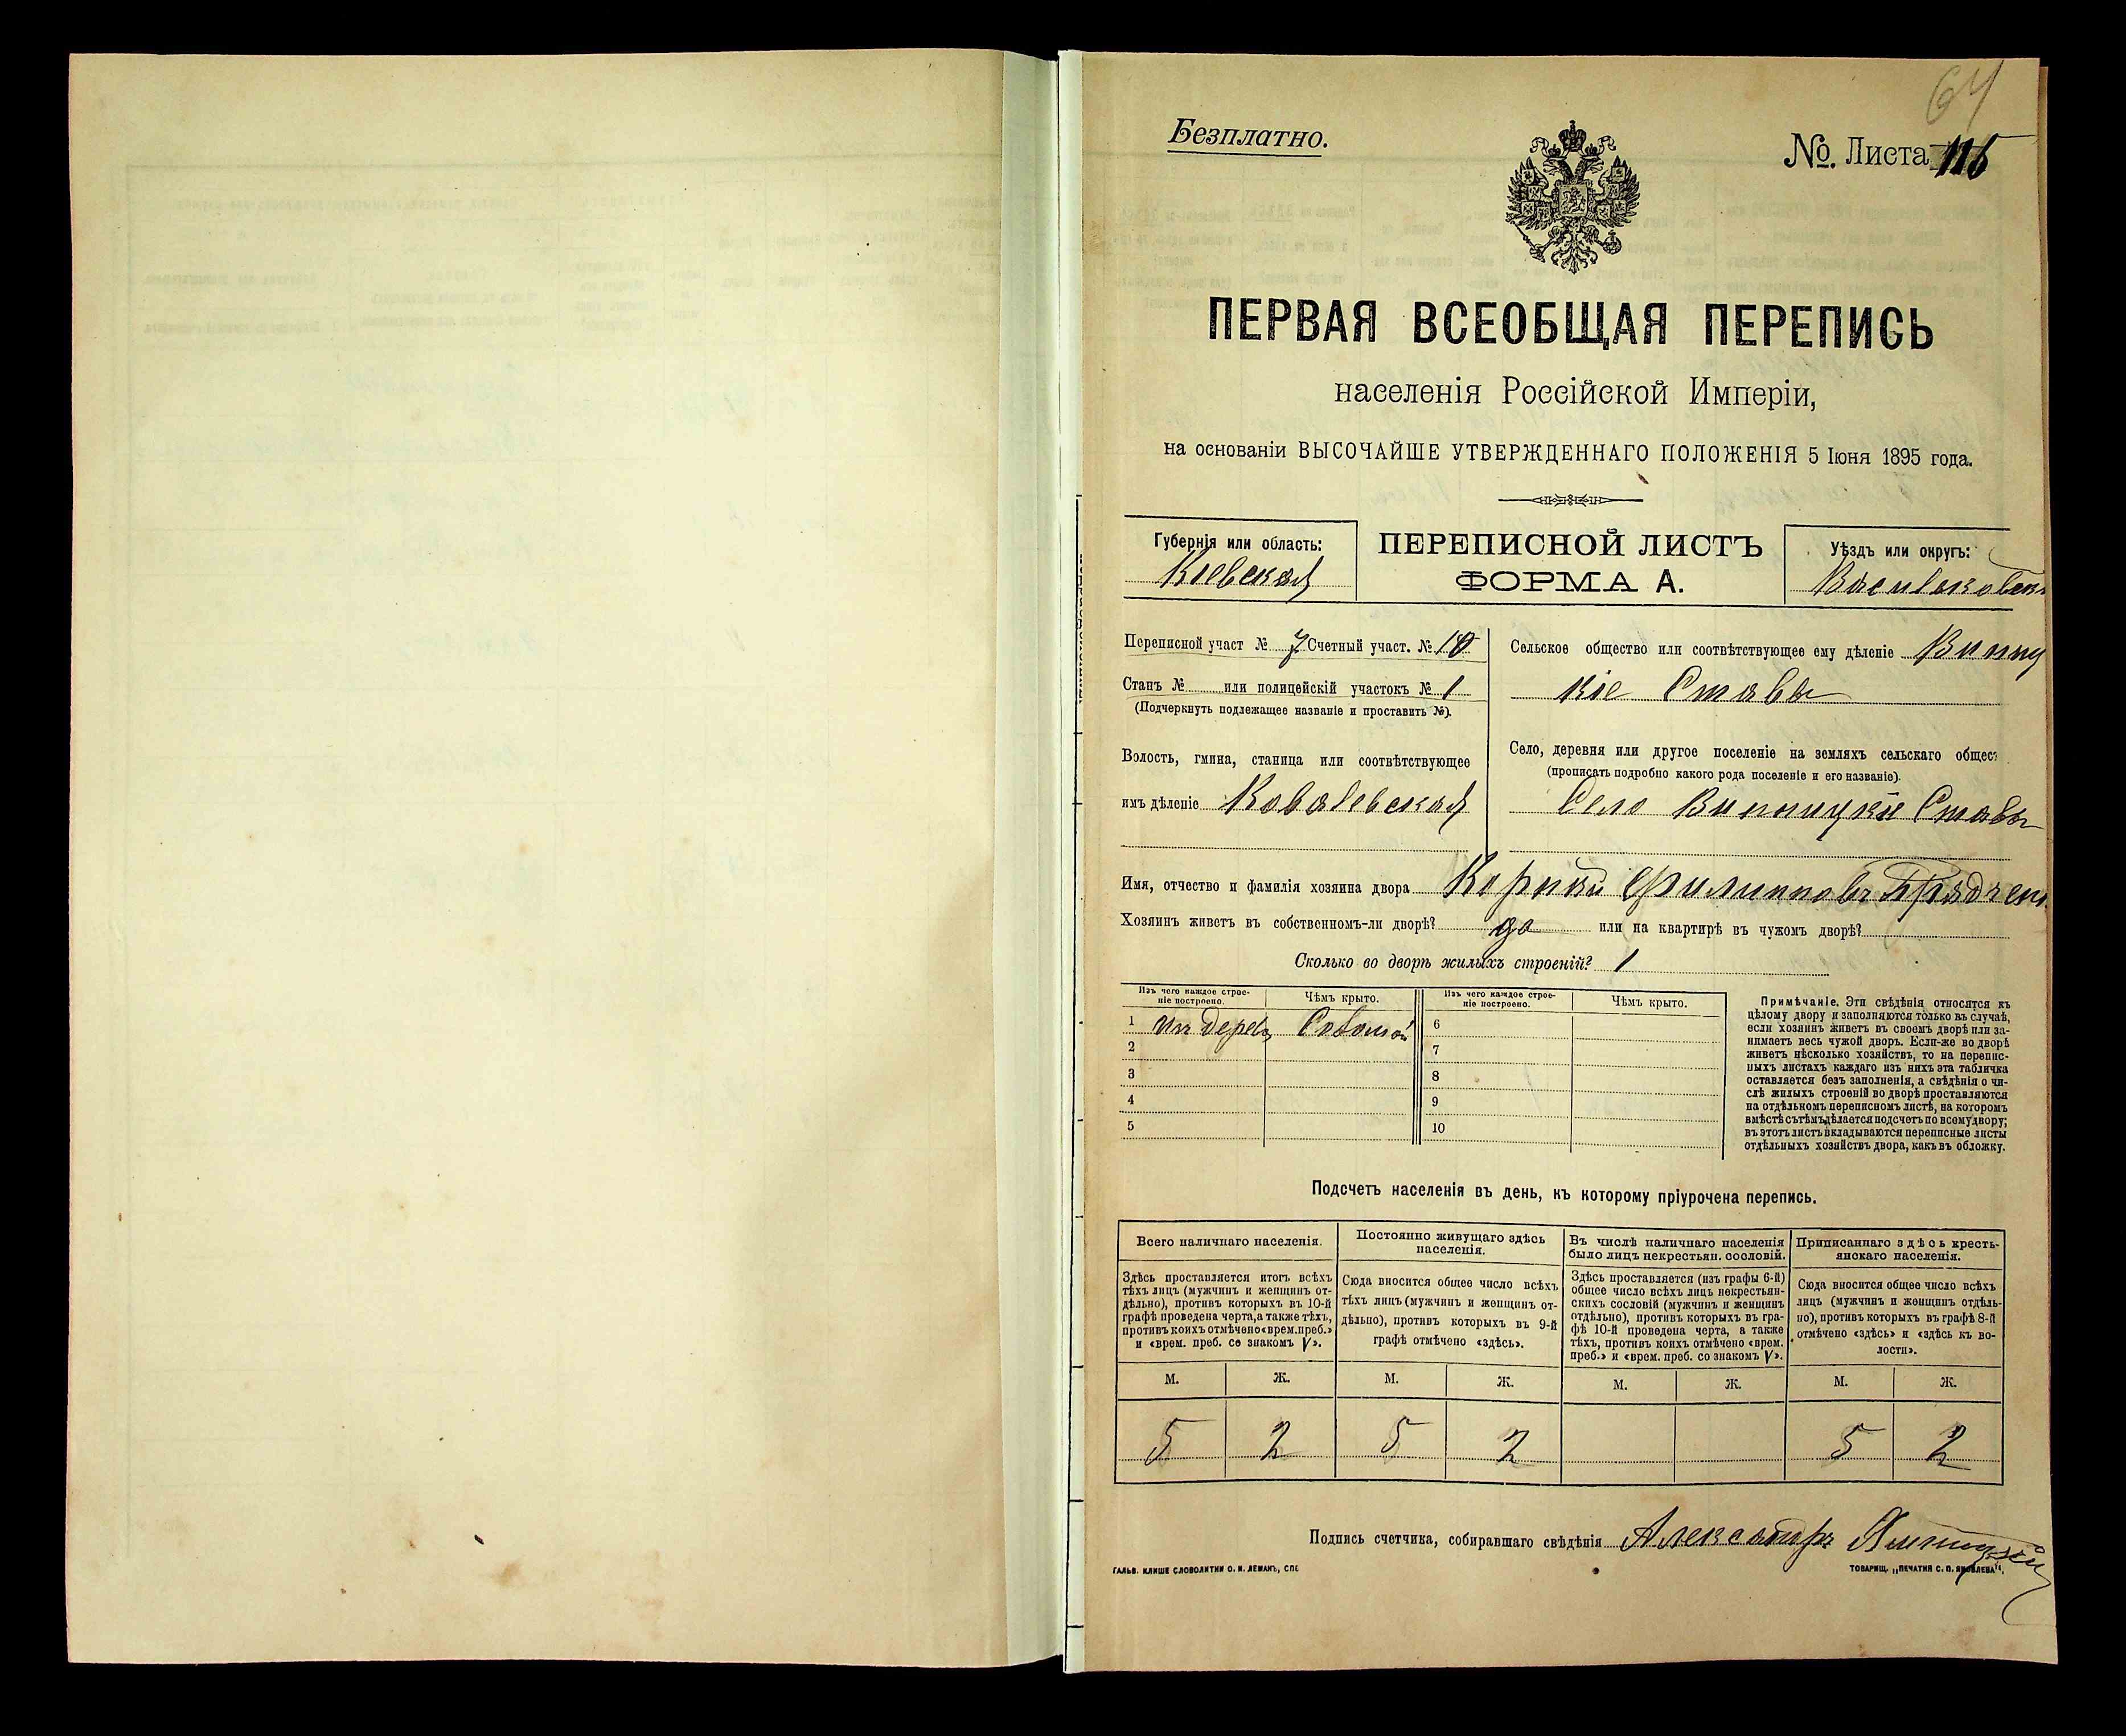 64
Безплатно.
№. Листа 115
ПЕРВАЯ ВСЕОБЩАЯ ПЕРЕПИСЬ
населенія Россійской Имперіи,
на основаніи ВЫСОЧАЙШЕ УТВЕРЖДЕННАГО ПОЛОЖЕНІЯ 5 Іюня 1895 года.
Губернія или область:
Кіевская
ПЕРЕПИСНОЙ ЛИСТЪ
ФОРМА А.
Уѣздъ или округъ:
Васильковск
Переписной участ № 7 Счетный участ. № 10
Станъ № или полицейскій участокъ № 1
(Подчеркнуть подлежащее названіе и проставить №).
Волость, гмина, станица или соотвѣтствующее
имъ дѣленіе Ковалевская
Сельское общество или соотвѣтствующее ему дѣленіе Винниц
кіе Ставы
Село, деревня или другое поселеніе на земляхъ сельскаго общес
(прописать подробно какого рода поселеніе и его названіе).
Село Винницкіе Ставы
Имя, отчество и фамилія хозяина двора Корнкй Филипповъ
Хозяинъ живетъ въ собственномъ-ли дворѣ? да или на квартирѣ въ чужомъ дворѣ?
Сколько во дворѣ жилыхъ строеній? 1
Изъ чего каждое строе-
ніе построено.
Чѣмъ крыто.
Изъ чего каждое строе-
ніе построено.
Чѣмъ крыто.
1 изъ дерева Соломой 6
2 7
3 8
4 9
5 10
Примѣчаніе. Эти свѣдѣнія относятся къ
цѣлому двору и заполняются только въ случаѣ,
если хозяинъ живетъ въ своемъ дворѣ или за-
нимаетъ весь чужой дворъ. Если-же во дворѣ
живетъ нѣсколько хозяйствъ, то на перепис-
ныхъ листахъ каждаго изъ нихъ эта табличка
оставляется безъ заполненія, а свѣдѣнія о чи-
слѣ жилыхъ строеній во дворѣ проставляются
на отдѣльномъ переписномъ листѣ, на которомъ
вмѣстѣ съ тѣмъ дѣлается подсчетъ по всему двору;
въ этотъ листъ вкладываются переписные листы
отдѣльныхъ хозяйствъ двора, какъ въ обложку.
Подсчетъ населенія въ день, къ которому пріурочена перепись.
Всего наличнаго населенія.
Здѣсь проставляется итогъ всѣхъ
тѣхъ лицъ (мужчинъ и женщинъ от-
дѣльно), противъ которыхъ въ 10-й
графѣ проведена черта, а также тѣхъ,
противъ коихъ отмѣчено «врем. преб.»
и «врем. преб. со знакомъ V».
Постоянно живущаго здѣсь
населенія.
Сюда вносится общее число всѣхъ
тѣхъ лицъ (мужчинъ и женщинъ от-
дѣльно), противъ которыхъ въ 9-й
графѣ отмѣчено «здѣсь».
Въ числѣ наличнаго населенія
было лицъ некрестьян. сословій.
Здѣсь проставляется (изъ графы 6-й)
общее число всѣхъ лицъ некрестьян-
скихъ сословій (мужчинъ и женщинъ
отдѣльно), противъ которыхъ въ гра-
фѣ 10-й проведена черта, а также
тѣхъ, противъ коихъ отмѣчено «врем.
преб.» и «врем. преб. со знакомъ V».
Приписаннаго здѣсь кресть-
янскаго населенія.
Сюда вносится общее число всѣхъ
лицъ (мужчинъ и женщинъ отдѣль-
но), противъ которыхъ въ графѣ 8-й
отмѣчено «здѣсь» и «здѣсь къ во-
лости».
М. Ж. М. Ж. М. Ж. М. Ж.
5 2 5 2 5 2
Подпись счетчика, собиравшаго свѣдѣнія Александръ
ГАЛЬВ. КЛИШЕ СЛОВОЛИТНИ О. И. ЛЕМАНЪ, СПБ
ТОВАРИЩ. „ПЕЧАТНЯ С. П. ЯКОВЛЕВА“,